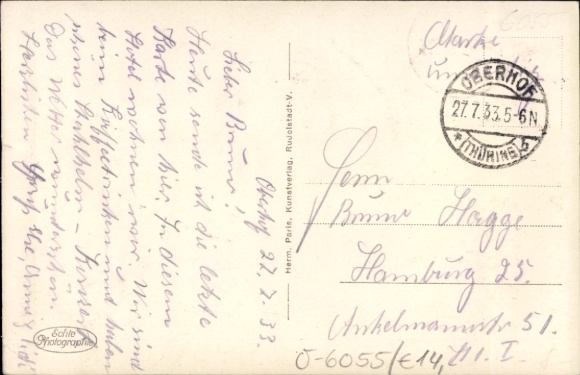 Oberhof 27.7.33.
Lieber Bruno!
Heute sende ich die letzte
Karte von hier. In diesem
Hotel wohnen wir. Wir sind
beim Kaffeetrinken und haben
Stahlhelm – Konzert
Das Wetter
Herzlichen Gruß
Echte
Photographie
Herm. Paris, Kunstverlag, Rudolstadt-V.
6055
Marke
OBERHOF
27.7.33.5-6N.
* (THÜRING) b
Herrn
Bruno Hagge
Hamburg 25.
Ankelmannstr 51.
III. I.
Ö-6055/€14,